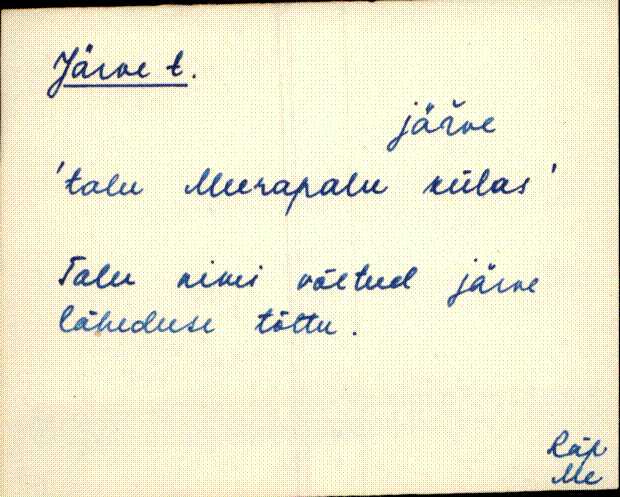 Järve t.
järve
'talu Meerapalu külas'
Talu nimi võetud järve
läheduse tõttu.
Räp
Me